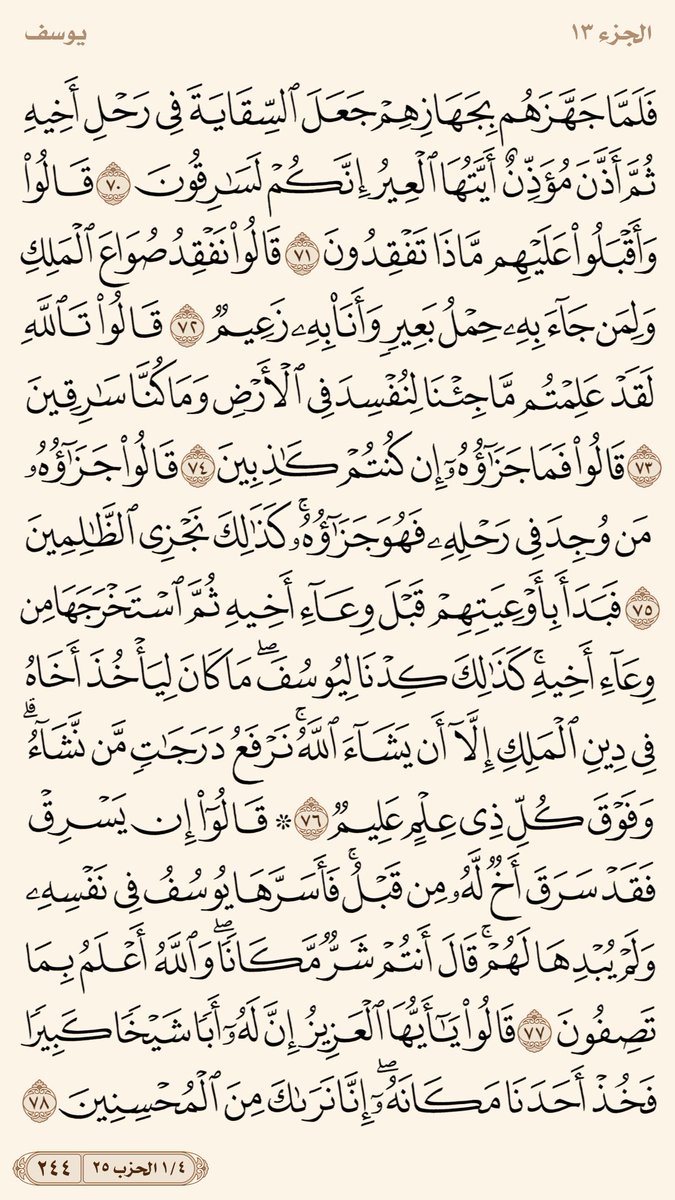 الجزء ١٣ يوسف
فَلَمَّا جَهَّزَهُم بِجَهَازِهِمْ جَعَلَ ٱلسِّقَايَةَ فِى رَحْلِ أَخِيهِ
ثُمَّ أَذَّنَ مُؤَذِّنٌ أَيَّتُهَا ٱلْعِيرُ إِنَّكُمْ لَسَٰرِقُونَ ٧٠ قَالُوا۟
وَأَقْبَلُوا۟ عَلَيْهِم مَّاذَا تَفْقِدُونَ ٧١ قَالُوا۟ نَفْقِدُ صُوَاعَ ٱلْمَلِكِ
وَلِمَن جَآءَ بِهِۦ حِمْلُ بَعِيرٍ وَأَنَا۠ بِهِۦ زَعِيمٌ ٧٢ قَالُوا۟ تَٱللَّهِ
لَقَدْ عَلِمْتُم مَّا جِئْنَا لِنُفْسِدَ فِى ٱلْأَرْضِ وَمَا كُنَّا سَٰرِقِينَ
٧٣ قَالُوا۟ فَمَا جَزَٰٓؤُهُۥٓ إِن كُنتُمْ كَٰذِبِينَ ٧٤ قَالُوا۟ جَزَٰٓؤُهُۥ
مَن وُجِدَ فِى رَحْلِهِۦ فَهُوَ جَزَٰٓؤُهُۥ ۚ كَذَٰلِكَ نَجْزِى ٱلظَّٰلِمِينَ
٧٥ فَبَدَأَ بِأَوْعِيَتِهِمْ قَبْلَ وِعَآءِ أَخِيهِ ثُمَّ ٱسْتَخْرَجَهَا مِن
وِعَآءِ أَخِيهِ ۚ كَذَٰلِكَ كِدْنَا لِيُوسُفَ ۖ مَا كَانَ لِيَأْخُذَ أَخَاهُ
فِى دِينِ ٱلْمَلِكِ إِلَّآ أَن يَشَآءَ ٱللَّهُ ۚ نَرْفَعُ دَرَجَٰتٍ مَّن نَّشَآءُ ۗ
وَفَوْقَ كُلِّ ذِى عِلْمٍ عَلِيمٌ ٧٦ ۞ قَالُوٓا۟ إِن يَسْرِقْ
فَقَدْ سَرَقَ أَخٌ لَّهُۥ مِن قَبْلُ ۚ فَأَسَرَّهَا يُوسُفُ فِى نَفْسِهِۦ
وَلَمْ يُبْدِهَا لَهُمْ ۚ قَالَ أَنتُمْ شَرٌّ مَّكَانًا ۖ وَٱللَّهُ أَعْلَمُ بِمَا
تَصِفُونَ ٧٧ قَالُوا۟ يَٰٓأَيُّهَا ٱلْعَزِيزُ إِنَّ لَهُۥٓ أَبًا شَيْخًا كَبِيرًا
فَخُذْ أَحَدَنَا مَكَانَهُۥٓ ۖ إِنَّا نَرَىٰكَ مِنَ ٱلْمُحْسِنِينَ ٧٨
١/٤ الحزب ٢٥ ٢٤٤